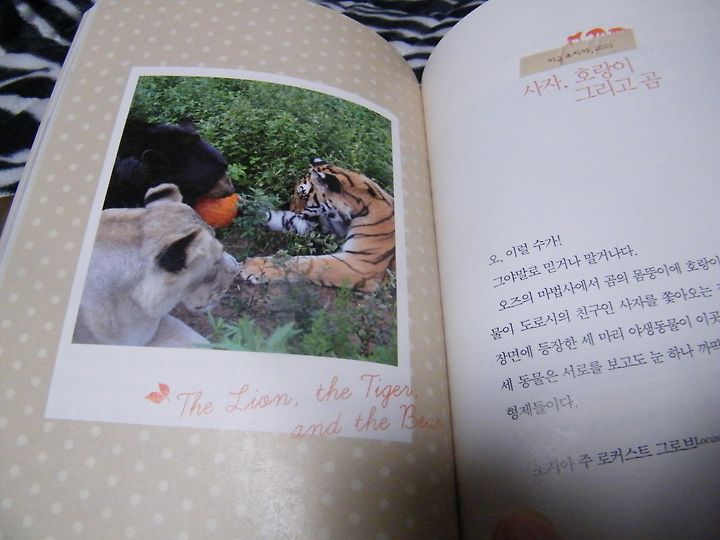 The Lion, the Tiger,
and the Bear
미국 조지아, 2001
사자, 호랑이
그리고 곰
오, 이럴 수가!
그야말로 믿거나 말거나다.
오즈의 마법사에서 곰의 몸뚱이에 호랑이
물이 도로시의 친구인 사자를 쫓아오는
장면에 등장한 세 마리 야생동물이 이곳
세 동물은 서로를 보고도 눈 하나 까딱
형제들이다.
조지아 주 로커스트 그로브Locus